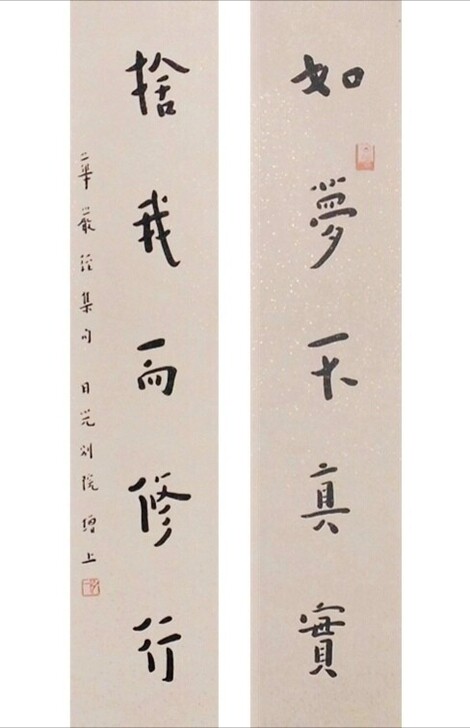 如夢不真實
捨我而修行
華嚴經集句 日光別院 上